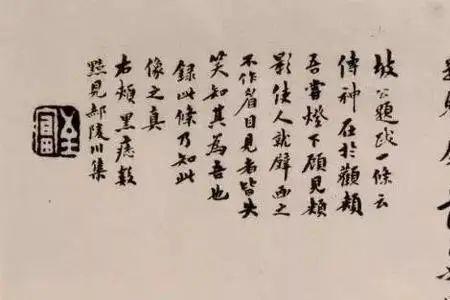 坡公題跋一條云
傳神在於顴頰
吾嘗燈下顧見頰
影使人就壁画之
不作眉目見者皆失
笑知其為吾也
録此條乃知此
像之真
右頰黑痣数
點見郝陵川集